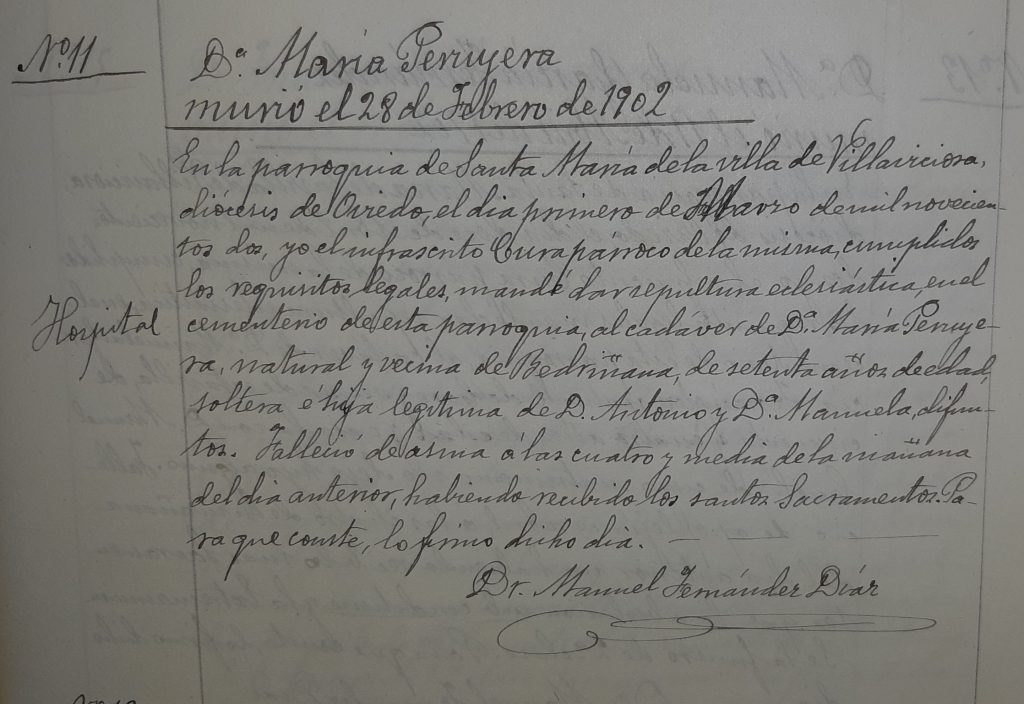 Nº 11
Dª. María Peruyera
murió el 28 de Febrero de 1902
En la parroquia de Santa María de la villa de Villaviciosa,
diócesis de Oviedo, el dia primero de Marzo de mil novecien-
tos dos, yo el infrascrito Cura párroco de la misma, cumplidos
los requisitos legales, mandé dar sepultura eclesiástica, en el
Hospital
cementerio de esta parroquia, al cadáver de Dª María Peruye-
ra, natural y vecina de Bedriñana, de setenta años de edad,
soltera é hija legítima de D. Antonio y Dª Manuela, difun-
tos. Falleció de asma á las cuatro y media de la mañana
del dia anterior, habiendo recibido los santos Sacramentos. Pa-
ra que conste, lo firmo dicho dia.
Dr. Manuel Fernández Díaz